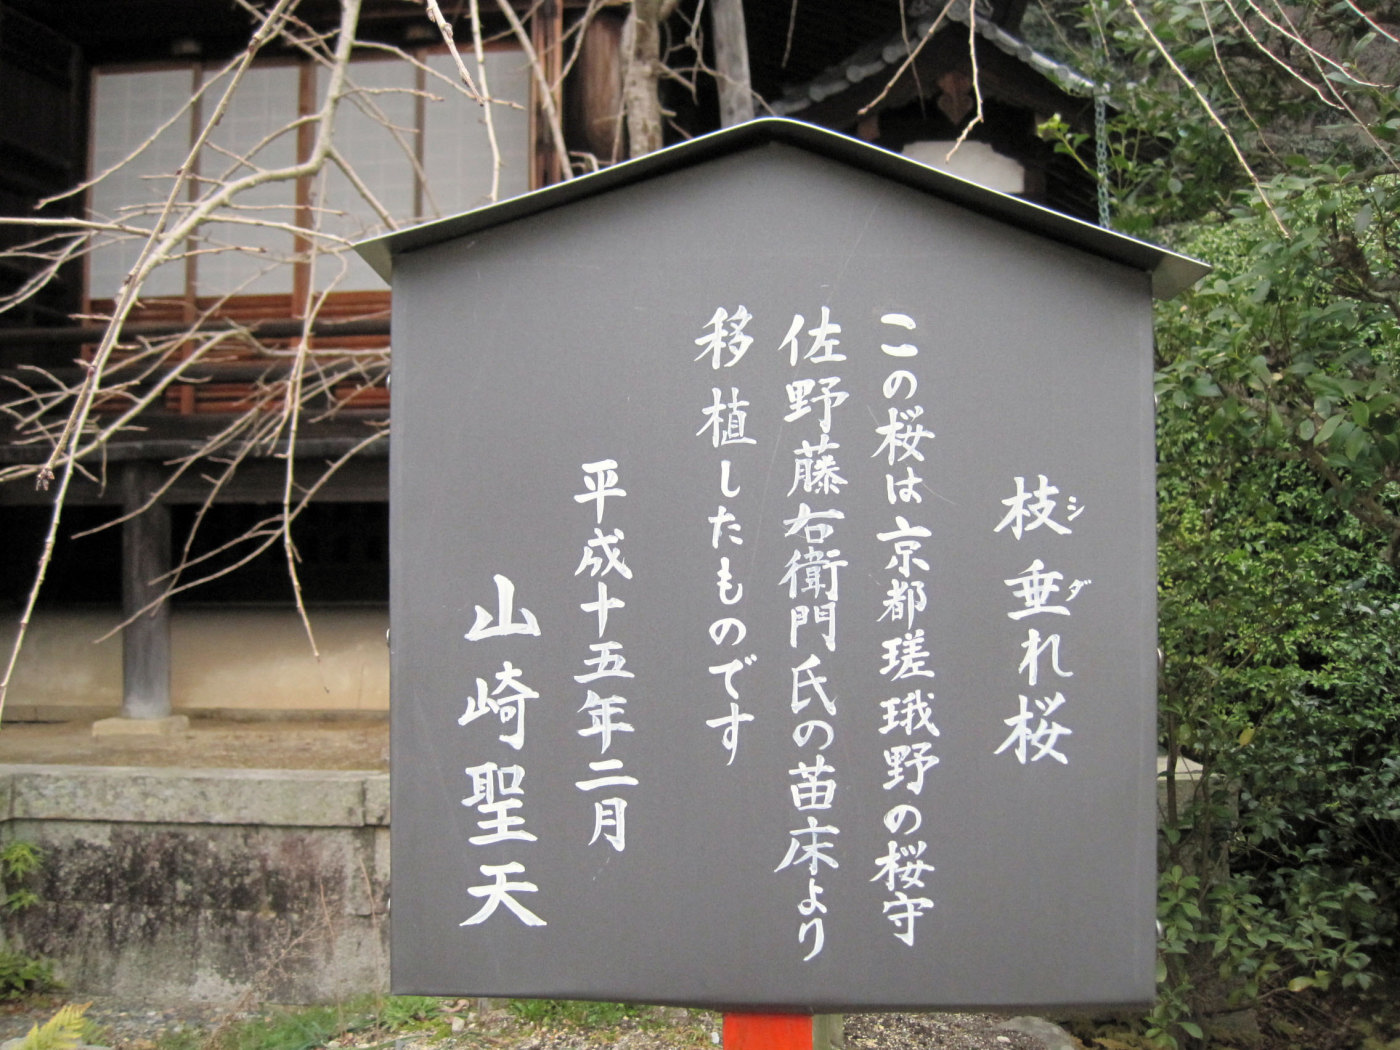 枝垂れ桜
シダ
この桜は京都瑳珴野の桜守
佐野藤右衛門氏の苗床より
移植したものです
平成十五年二月
山崎聖天